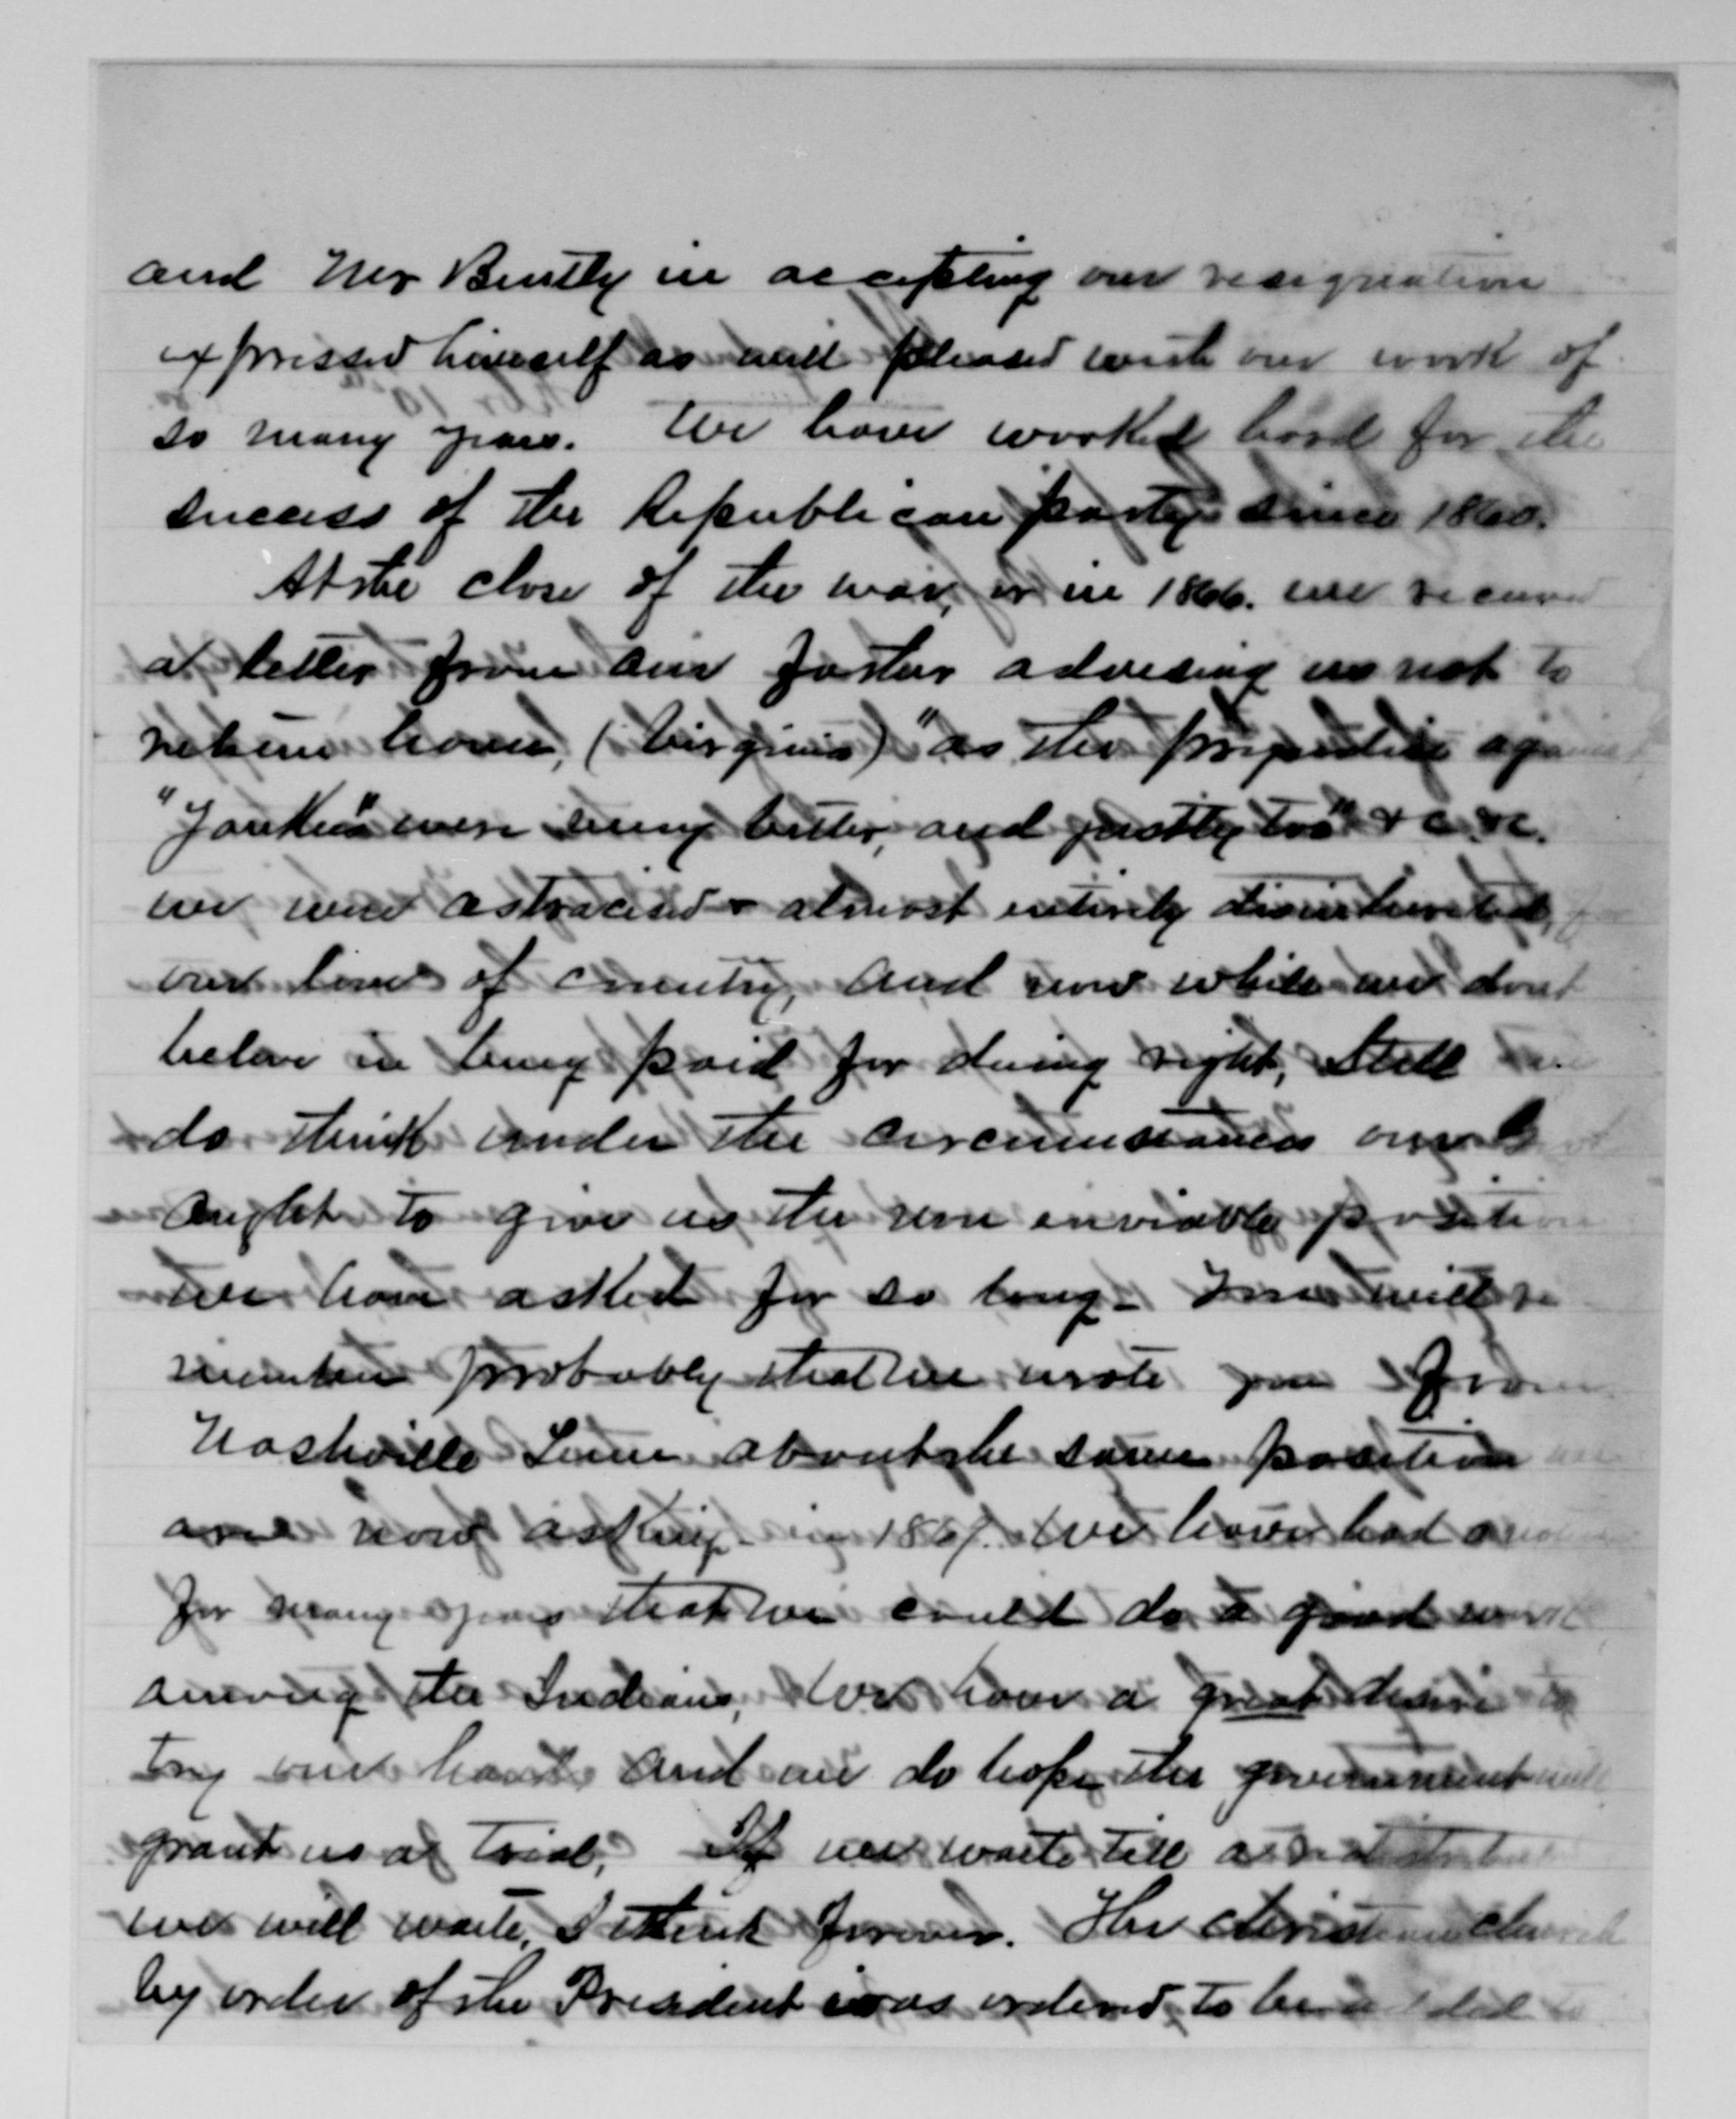 and Mr Bently in accepting our resignation
expressed himself as well pleased with our work of
so many years. We have worked hard for the
success of the Republican party since 1860.
At the close of the war, or in 1866. we received
a letter from our Foster advising us not to
return home, (Virginia) "as the prejudice against
"Yankees" were very bitter, and justly too" &c. &c.
we were astracised & almost entirely disinherited, for
our love of country, And now while we dont
beleve in being paid for doing right, Still we
do think under the circumstances
aught to give us the une enviable position
we have asked for so long - You will re
member probably that we wrote you from
Nashville Tenn about the same position we
are now asking - in 1867. We have had a notion
for many years that we could do a good work
among the Indians, We have a great desire to
try our hand, And we do hope the government will
grant us a trial, If we waite till a
we will waite, I think forever. The Christian Church
by order of the President was ordered, to be added to